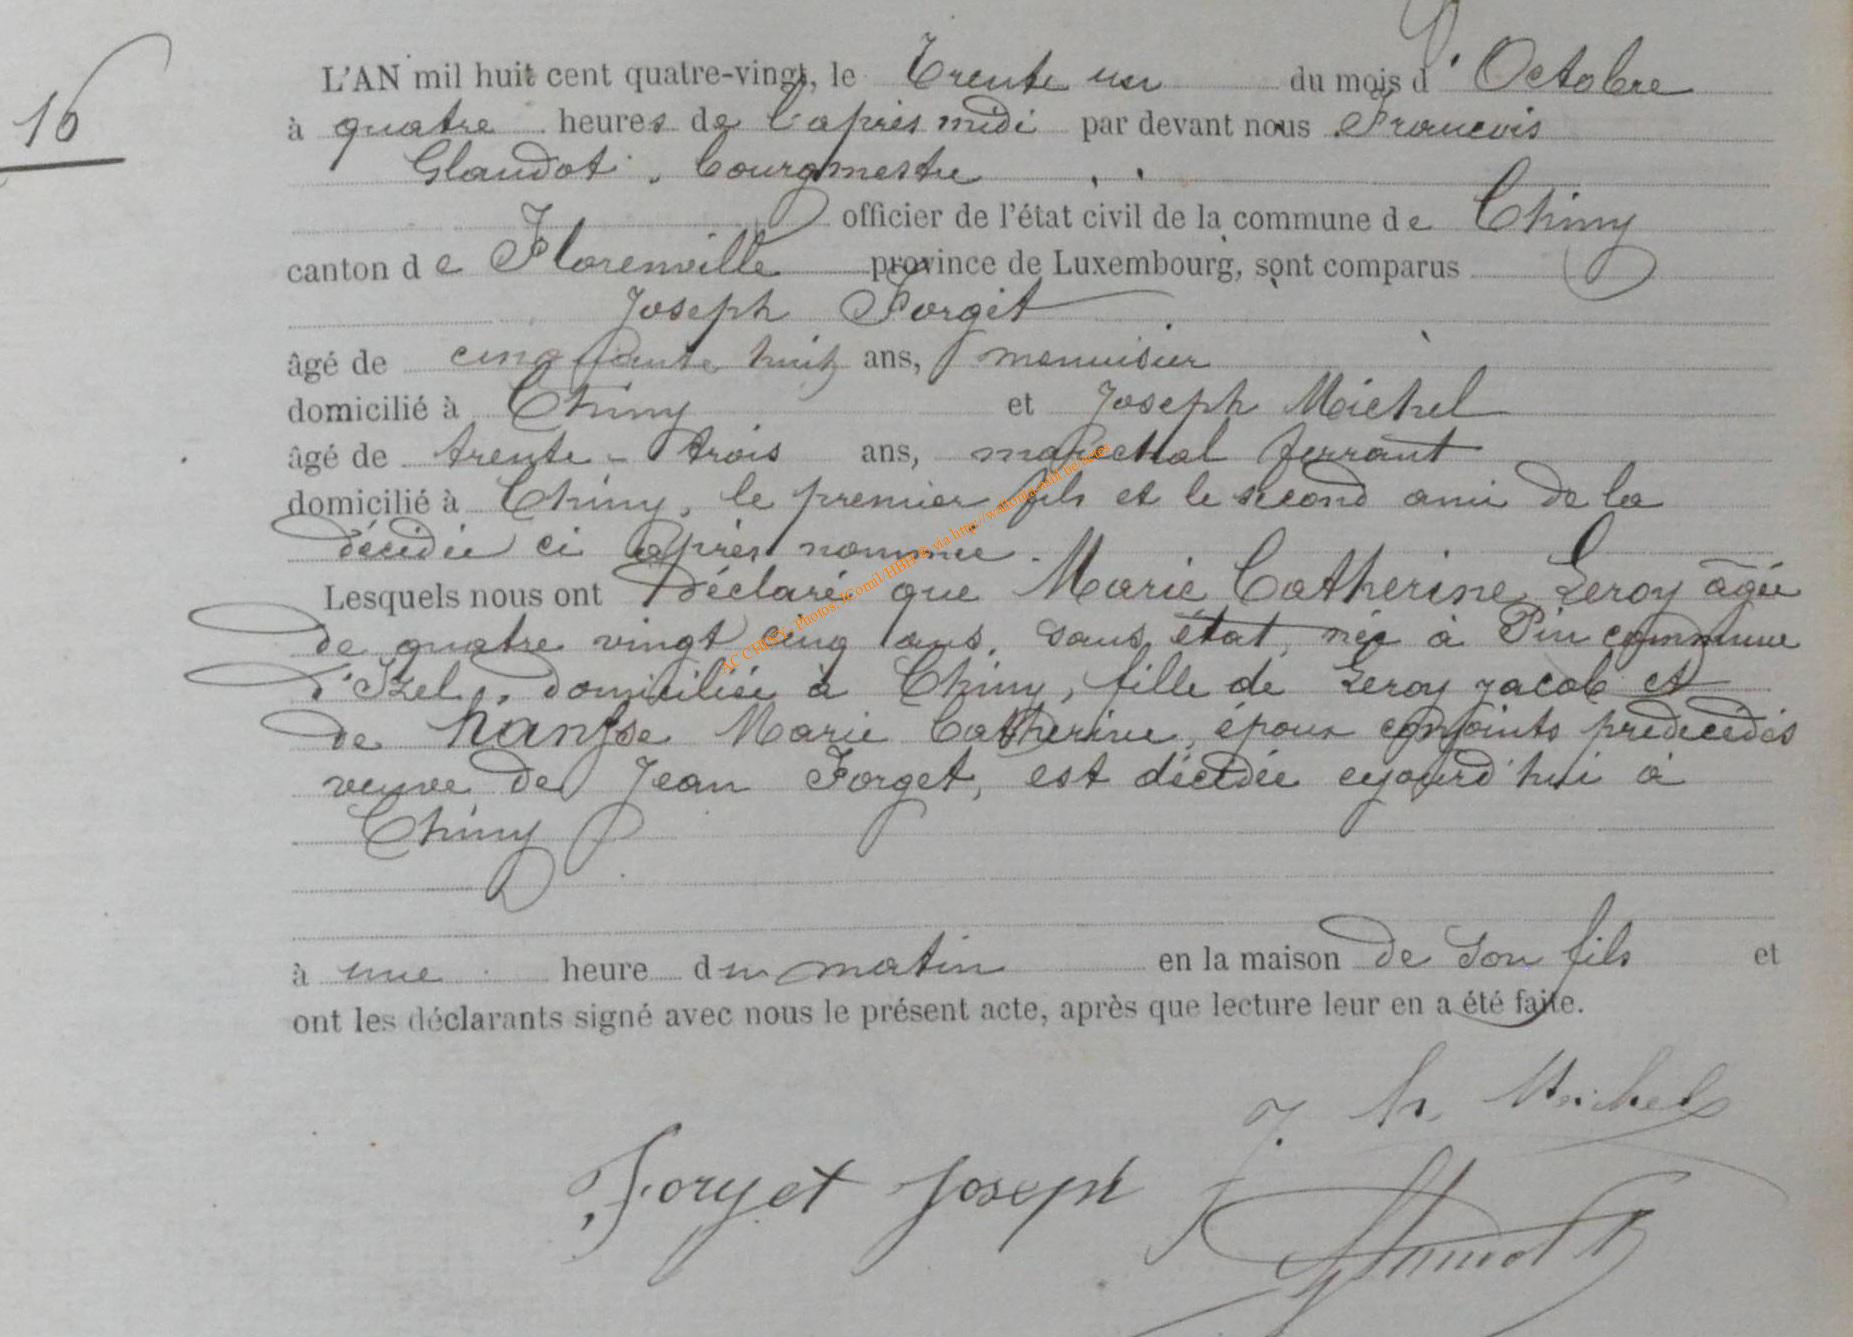 16
L'AN mil huit cent quatre-vingt, le Trente un du mois d'Octobre
à quatre heures de l'après midi par devant nous Francois
Glaudot, bourgmestre
officier de l'état civil de la commune de Chiny
canton de Florenville province de Luxembourg, sont comparus
Joseph Forget
âgé de cinquante huit ans, menuisier
domicilié à Chiny et Joseph Michel
âgé de trente-trois ans, maréchal ferrant
domicilié à Chiny, le premier fils et le second ami de la
décédée ci après nommée.
Lesquels nous ont Déclaré que Marie Catherine Leroy âgée
de quatre vingt cinq ans, sans état, née à Pin commune
d'Izel, domiciliée à Chiny, fille de Leroy Jacob et
de Marie Catherine, époux conjoints prédécédés
veuve de Jean Forget, est décédée aujourd'hui à
Chiny
à une heure du matin en la maison de son fils et
ont les déclarants signé avec nous le présent acte, après que lecture leur en a été faite.
J. h. Michel
Forget Joseph
Glaudot